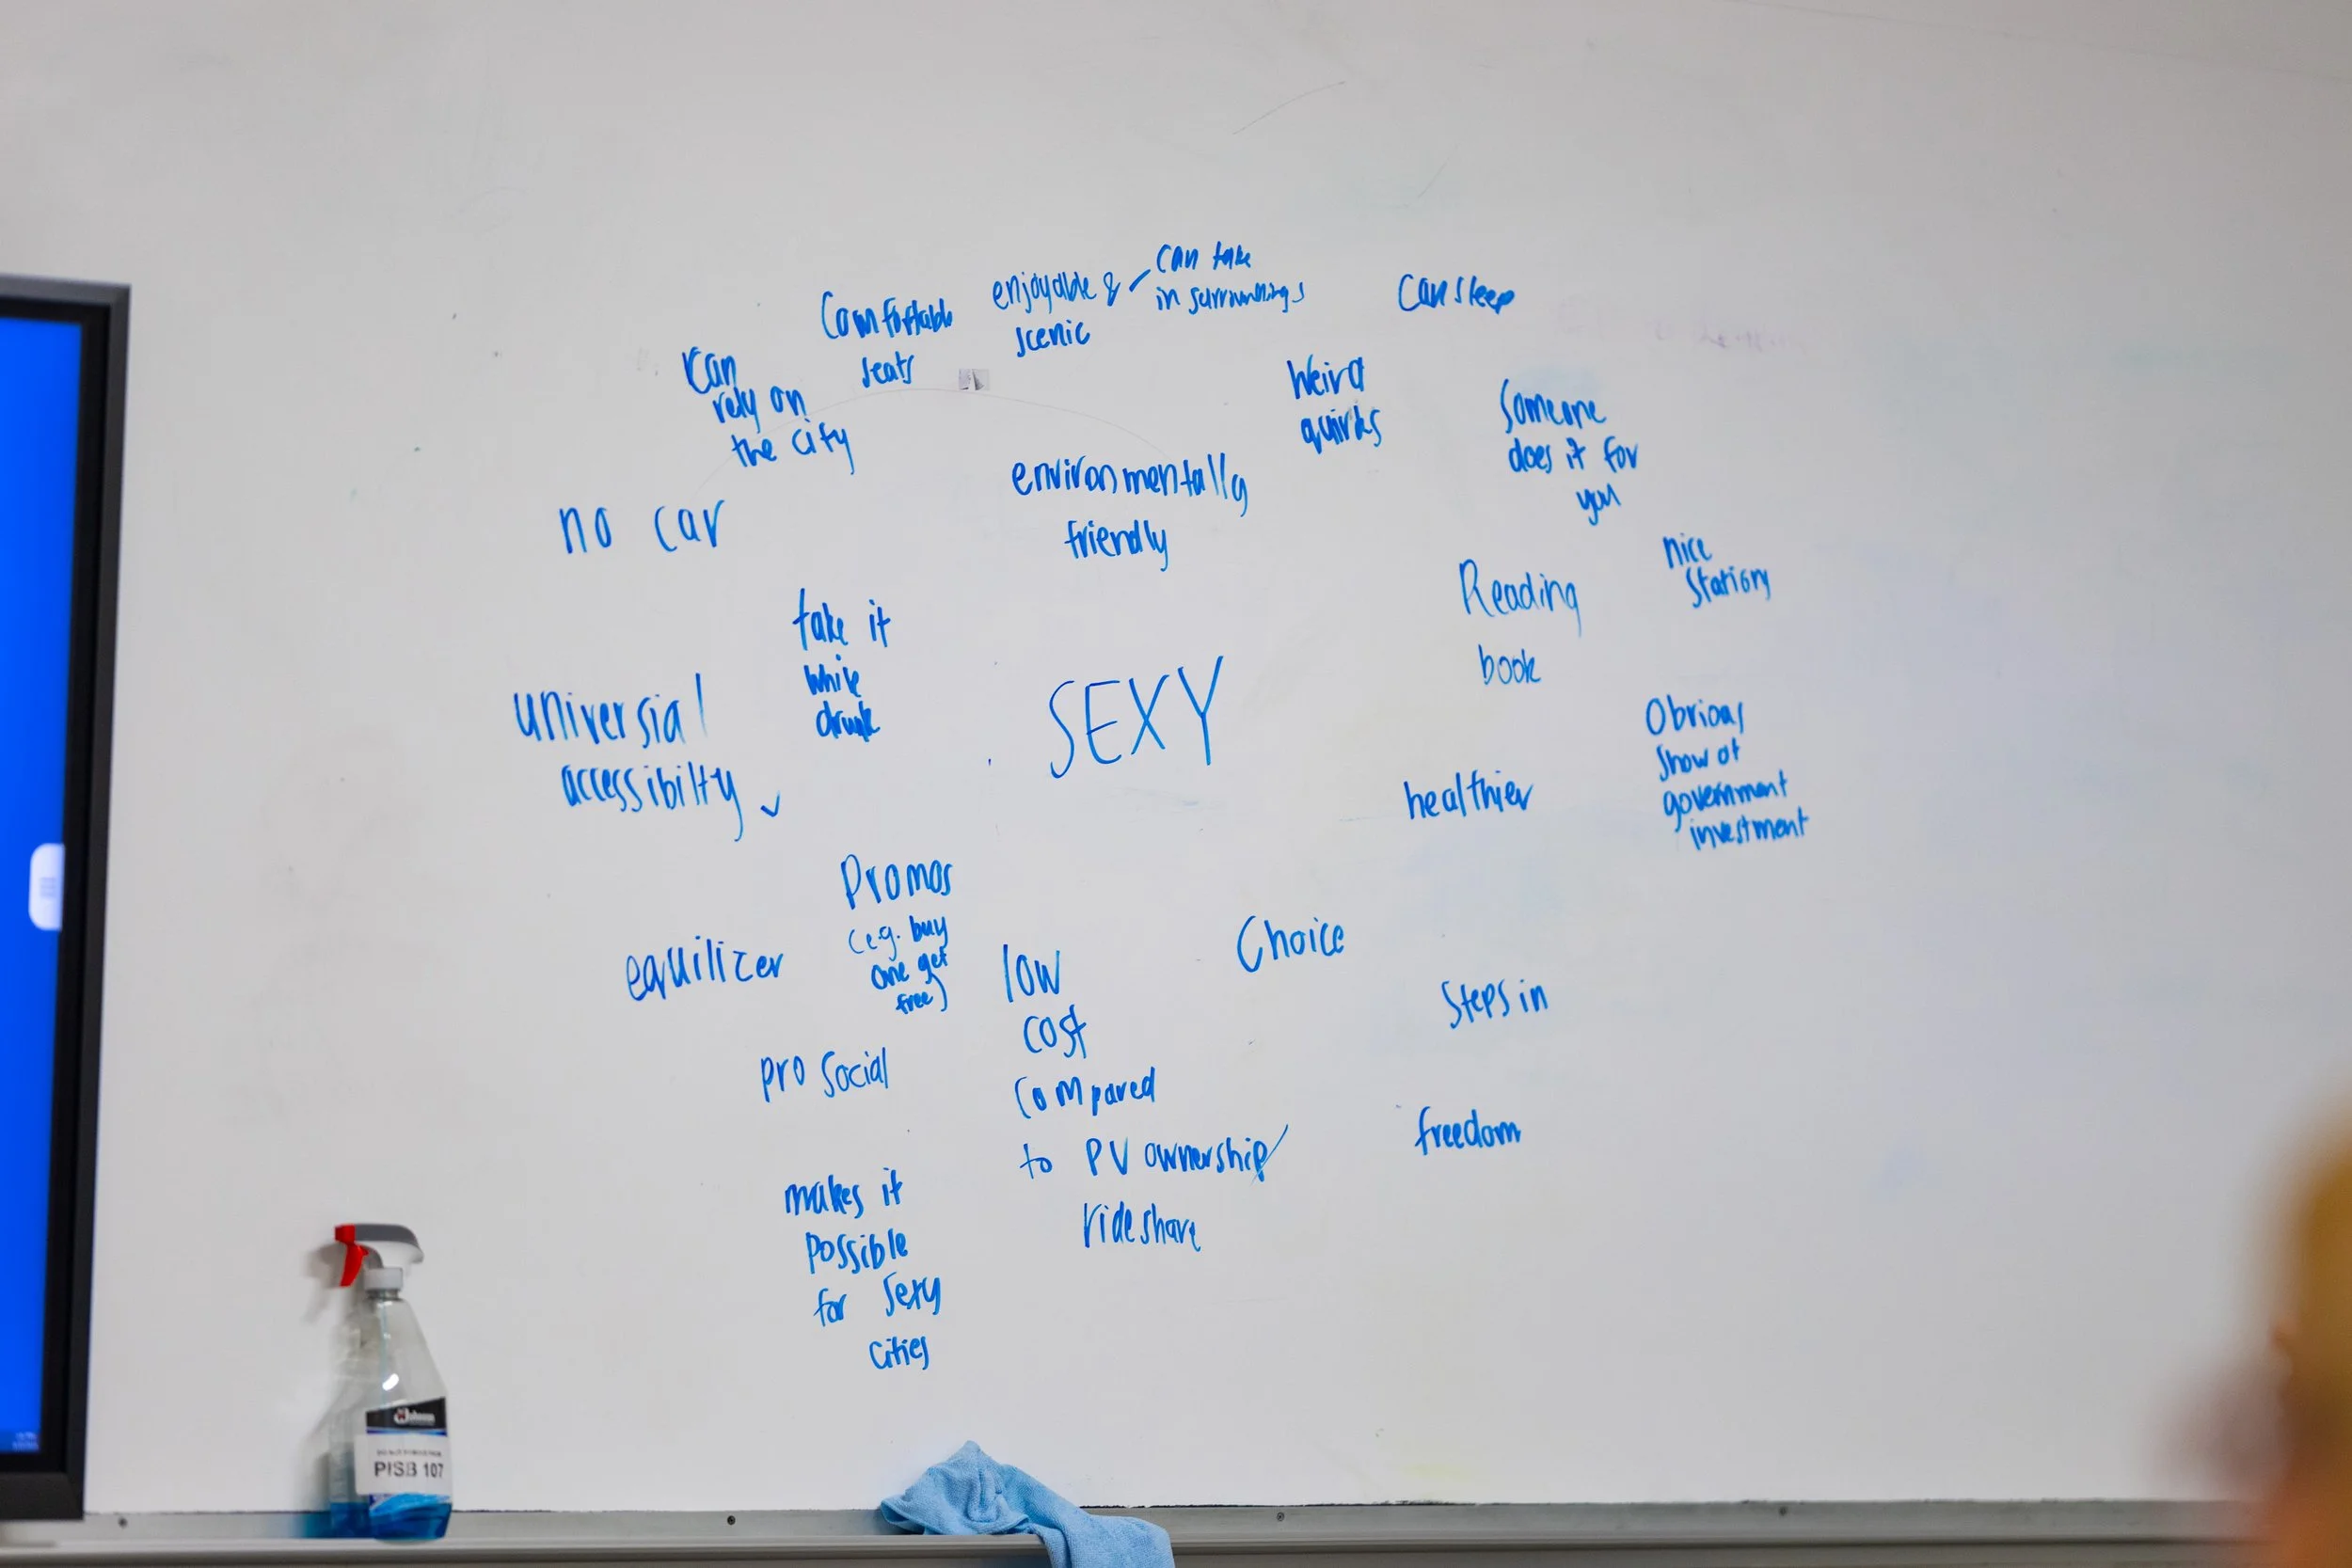 can take
in surroundings
enjoyable &
scenic
can sleep
Comfortable
seats
can
rely on
the city
Weird
quirks
Someone
does it for
you
environmentally
friendly
no car
nice
Station
Reading
book
take it
while
drunk
SEXY
universial
accessibilty
Obvious
show of
government
investment
healthier
Promos
(e.g. buy
one get
free)
equilizer
low
cost
compared
to PV ownership/
rideshare
Choice
Steps in
pro social
freedom
makes it
possible
for sexy
cities
PISB 107